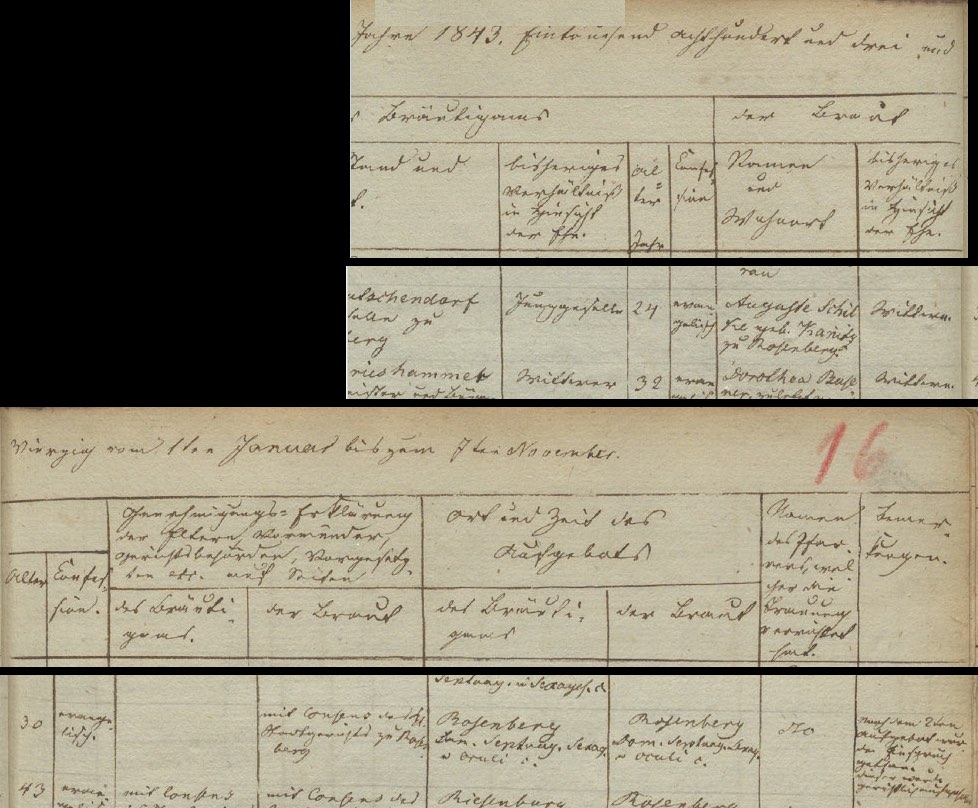 Jahre 1843. Eintausend achthundert und drei und
s Bräutigams
der Braut
Stand und
t.
bisheriges
Verhältniß
in Hinsicht
der Ehe.
Al=
ter
Jahr
Confes=
sion
Namen
und
Wohnort
bisheriges
Verhältniß
in Hinsicht
der Ehe.
utschendorf
selle zu
berg
Junggeselle
24
evan
gelisch
Auguste Schil
ke geb. Kanitz
zu Rosenberg
Wittwe.
rieshammer
Wittwer
32
evan
Dorothea
Wittwe.
Vierzig vom 1ten Januar bis zum 7ten November.
16
Alter
Confes=
sion.
Genehmigungs=Erklärung
der Eltern, Vormünder,
Gerichtsbehörden, Vorgesetz
ten etc. auf Seiten
des Bräuti
gams.
der Braut
Ort und Zeit des
Aufgebots
des Bräuti=
gams
der Braut
Namen
des Pfar=
rers, wel
cher die
Trauung
verrichtet
hat.
Bemer
kungen.
Septuag. u Sexages. c.
30
evange=
lisch.
mit Consens des
Stadtgerichts zu Rosen
berg
Rosenberg
Dom. Septuag. Sexag.
u Oculi c.
Rosenberg
Dom. Septuag. Sexag.
u Oculi c.
Nach dem 2ten
Aufgebot
der Einspruch
43
evan
mit Consens
mit Consens des
Riesenburg
Rosenberg